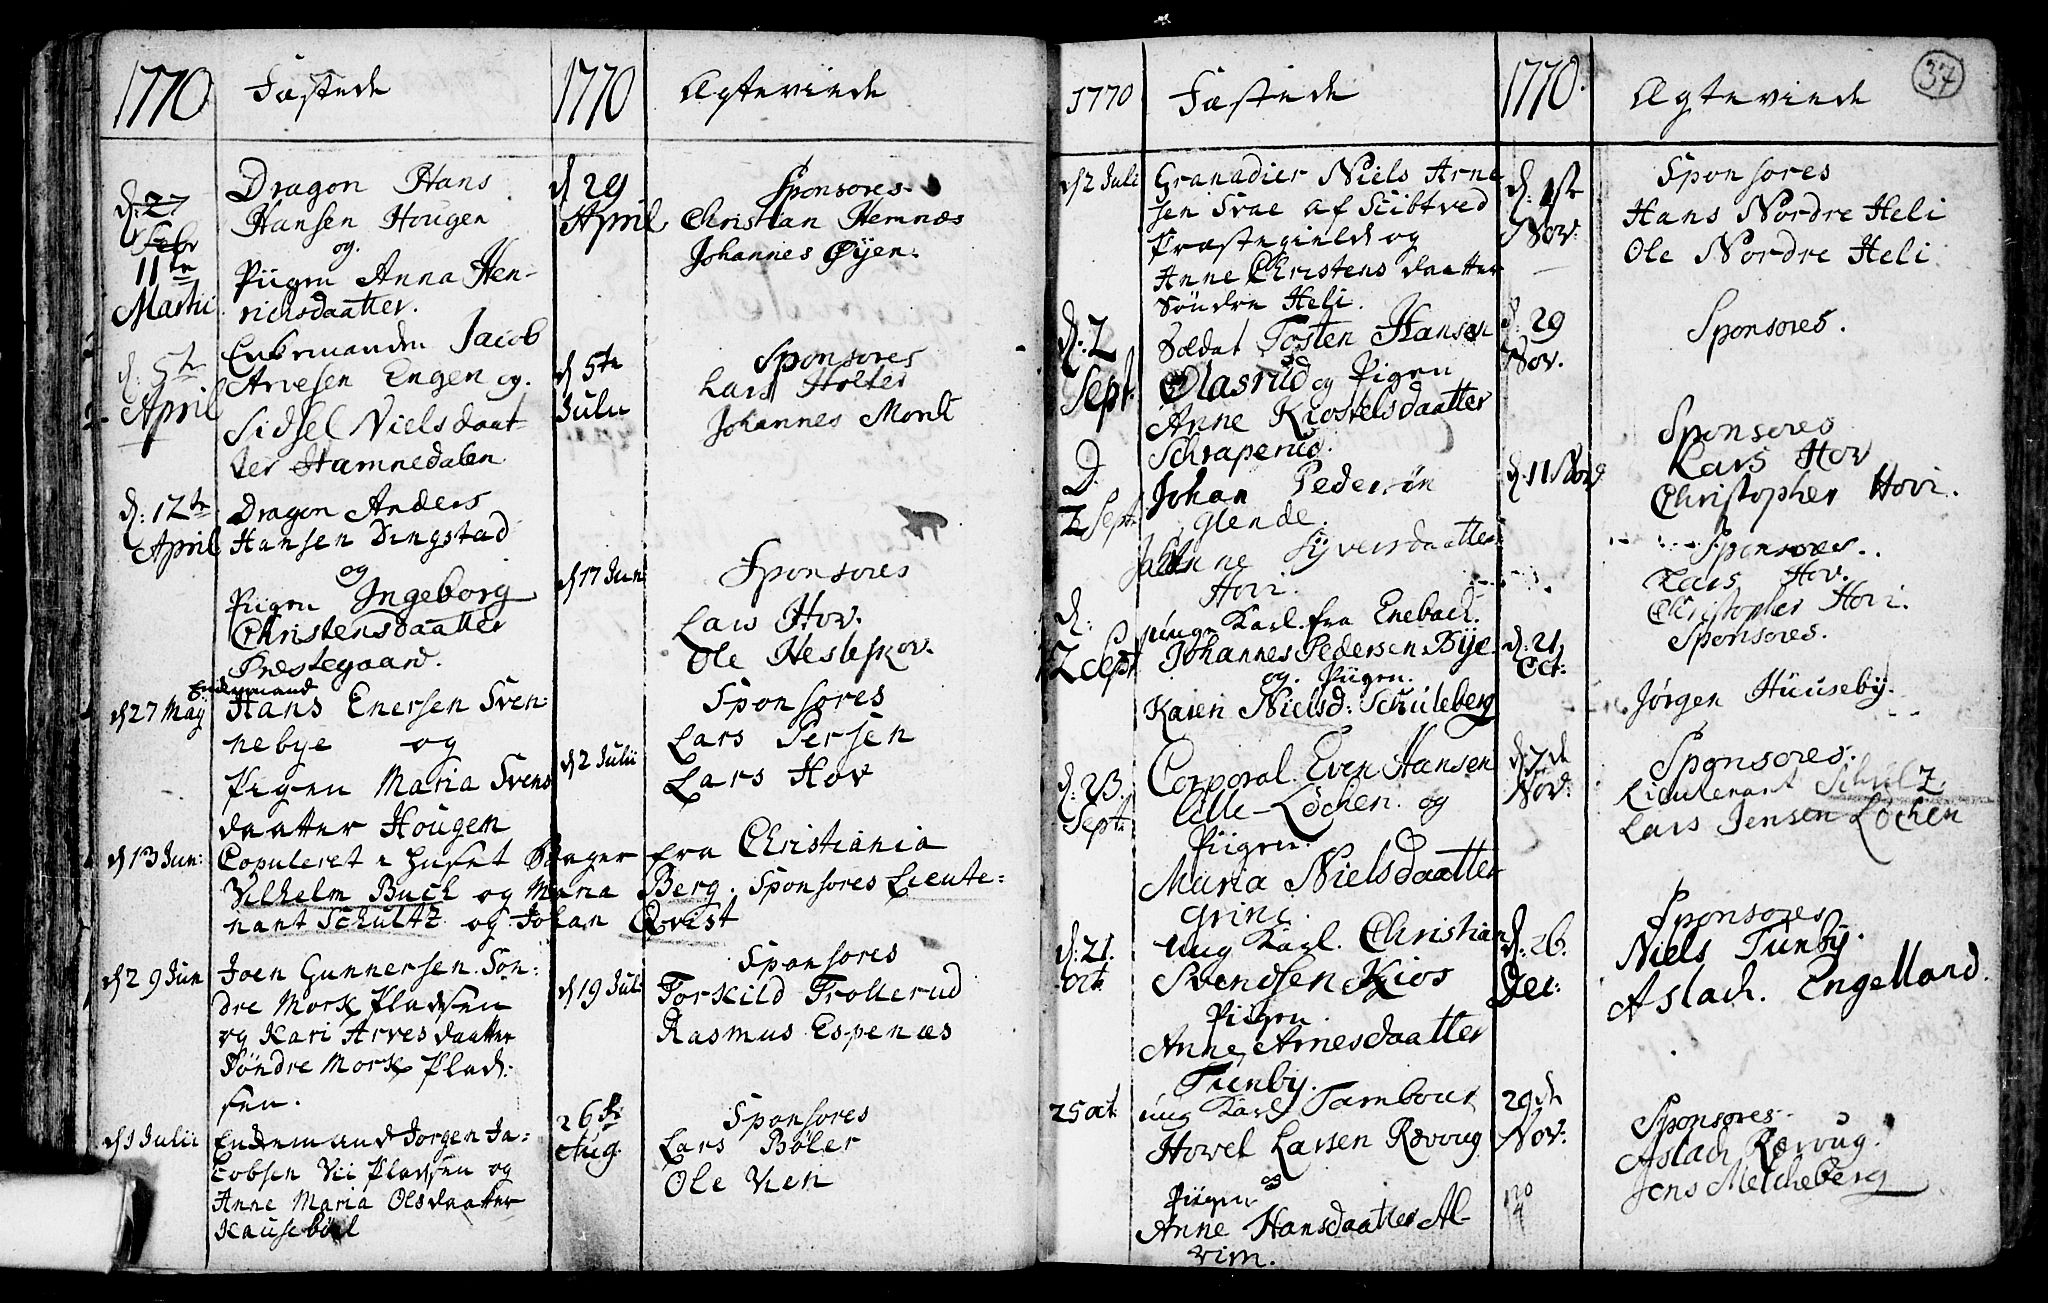 1770
Fæstede
1770
Ægteviede
d: 27 Febr
11te
Martii
Dragon Hans
Hansen Hougen
og
Piigen Anna Hen-
richsdaatter.
d 29
April
Sponsores
Christian Hemnæs
Johannes Øyen.
d: 5te
April
Enkemanden Jacob
Arvesen Engen og
Sidsel Nielsdaat-
ter Hamnedalen
d 5te
Julii
Sponsores
Lars Holter
Johannes Mordt
d: 12te
April
Dragon Anders
Hansen Dingstad
og
Piigen Ingeborg
Christensdaatter
Præstegaard.
d 17 Juni
Sponsores
Lars Hov.
Ole Hesleskov.
d 27 Maij
Enkemand
Hans Enersen Sven-
nebye og
Pigen Maria Svens
daatter Hougen
d 2 Julii
Sponsores
Lars Persen
Lars Hov
d 13 Jun:
Copuleret i Huset Borger fra Christiania
Vilhelm Buch og Maria Berg. Sponsores Lieute-
nant Schultz og Johan Qvist
d 29 Jun
Joen Gunnersen Søn-
dre Mork Pladsen
og Kari Arvesdaatter
Søndre Mork Plad-
sen.
d 19 Jul:
Sponsores
Torkild Trollerud
Rasmus Espenæs
d 1 Julii
Enkemand Jørgen Ja-
cobsen Vii Pladsen og
Anne Maria Olsdaatter
Kausebøl
26de
Aug.
Sponsores
Lars Bøler
Ole Vien
1770
Fæstede
1770
Ægteviede
37
d 2 Juli
Granadier Niels Arne
sen Svae af Schibtved
Præstegield og
Anne Christens daatter
Søndre Heli.
d. 1ste
Nov:
Sponsores
Hans Nordre Heli
Ole Nordre Heli
d: 2
Sept.
Soldat Tosten Hansen
Olasrud og Pigen
Anne Kiostelsdaatter
Schraperud.
d: 29
Nov.
Sponsores.
D.
2 Sept.
Johan Pedersøn
Glende.
Anne Syversdaatter
Hovi.
d. 11 Nov
Sponsores
Lars Hov
Christopher Hovi.
Sponsores.
Lars Hov.
Christopher Hovi.
d:
2 Sept
unge Karl fra Enebach
Johannes Pedersen Bye
og Piigen.
Karen Nielsd: Schuleberg
d. 21
Oct:
Sponsores.
Jørgen Huuseby.
d: 23.
Sept:
Corporal Even Hansen
Lille-Løchen og
Piigen
Maria Nielsdaatter
Grini.
d. 7de
Nov:
Sponsores.
Lieutenant Schulz
Lars Jensen Løchen
d: 21.
Oct
ung Karl Christian
Svendsen Kios
Piigen
Anne Arnesdaatter
Tunby.
d. 26.
Dec:
Sponsores
Niels Tunby.
Aslach Engelland.
25 Oct:
ung Karl Tambour
Hovel Larsen Rævoug
og
Piigen
Anne Hansdaatter Al-
vim.
29de
Nov:
Sponsores
Aslach Rævoug.
Jens Melcheberg